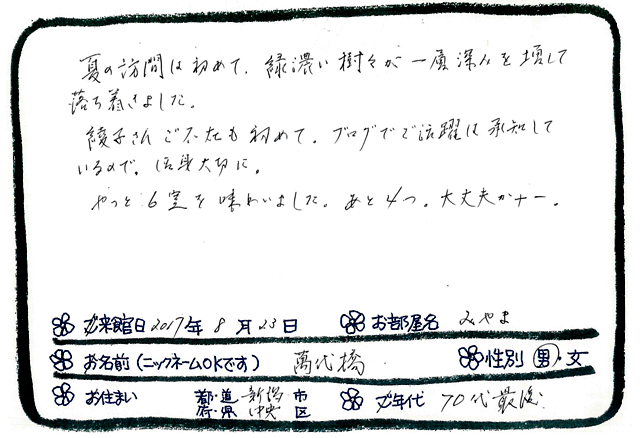 夏の訪問は初めて、緑濃い樹々が一層深みを増して
落ち着きました。
綾子さんご不在も初めて。ブログでご活躍は承知して
いるので。御身大切に。
やっと6室を味わいました。あと4つ。大丈夫かナー。
ご来館日 2017年 8月23日 お部屋名 みやま
お名前(ニックネームOKです) 萬代橋 性別 男・女
お住まい 都・道・府・県 新潟 市 中央 区 ご年代 70代最後